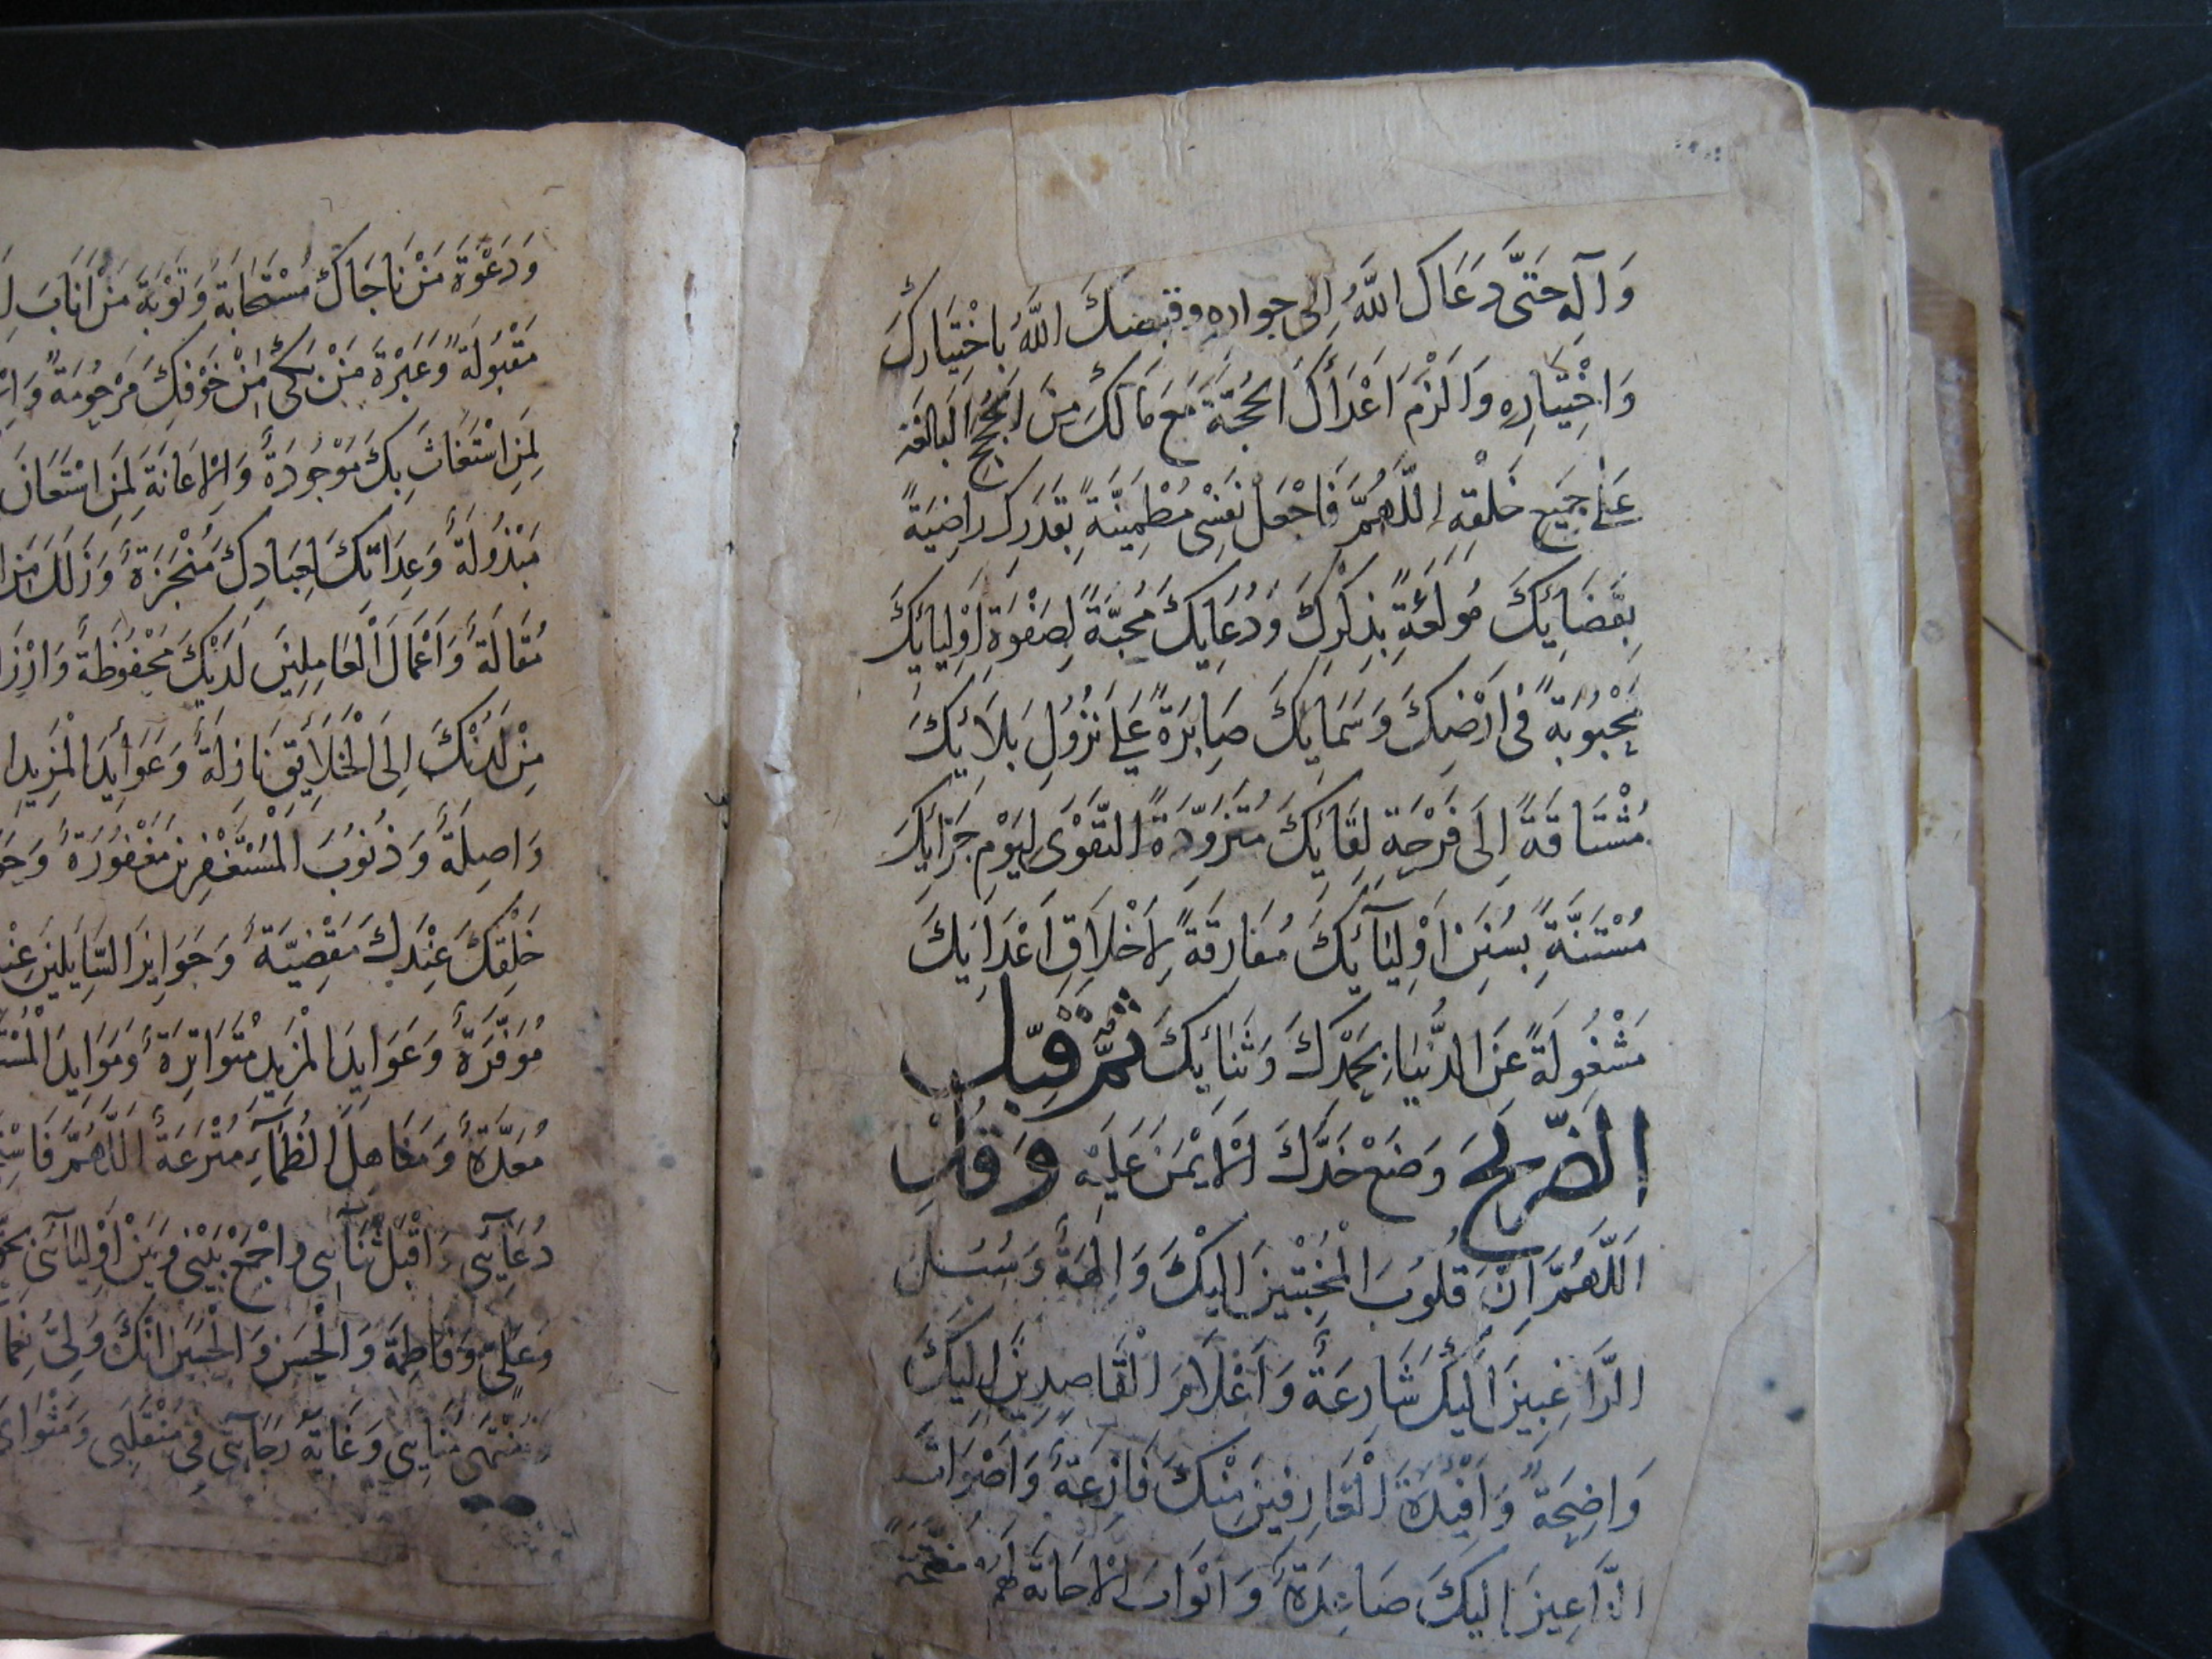 وَآلِهِ حَتَّى دَعَاكَ اللَّهُ إِلى جواره وقبضك اللَّهُ بِاخْتِيَارِكَ
وَاخْتِيَارِهِ وَالْزَمَ اَعْدَأَكَ الحُجَّةَ مَعَ مَا لَكَ مِنَ الحُجَجِ البَالغَة
عَلٰى جَمِيعِ خَلْقِهِ اللَّهُمَّ فَاجْعَلْ نَفْسِى مُطْمِئِنَّةً بِقَدَرِكَ رَاضِيَةً
بِقَضَايِكَ مُولَعَةً بِذِكْرِكَ وَدُعَايِكَ مُحِبَّةً لِصَفْوَةِ اَوْلِيائِكَ
مَحْبُوبَةً فى اَرْضِكَ وَسَمَايِكَ صَابِرَةً عَلىَ نُزُولِ بَلَايِكَ
مُشْتَاقَةً اِلَى فَرْحَةِ لِقَايِكَ مُتَزَوِّدَةً التَّقْوَى لِيَوْمِ جَزَايِكَ
مُسْتَنَّةً بِسُنَنِ اَوْلِيَآيِكَ مُفَارِقَةً لِاَخْلَاقِ اَعْدَايِكَ
مَشْغُولَةً عَنِ الدُّنْيَا بِحَمْدِكَ وَثَنَايِكَ ثُمَّ قَبِّلِ
الضَّرِيحَ وَضَعْ خَدَّكَ الْاَيْمَنَ عَلَيْهِ وَقُلْ
اَللَّهُمَّ اِنَّ قُلُوبَ الْمُخْبِتِينَ اِلَيْكَ وَالِهَةٌ وَسُبُلَ
الرَّاغِبِينَ اِلَيْكَ شَارِعَةٌ وَاَعْلَامَ الْقَاصِدِينَ اِلَيْكَ
وَاضِحَةٌ وَاَفْئِدَةَ الْعَارِفِينَ مِنْكَ فَازِعَةٌ وَاَصْوَاتَ
الدَّاعِينَ اِلَيْكَ صَاعِدَةٌ وَاَبْوَابَ الْاِجَابَةِ لَهُمْ مُفَتَّحَةٌ
وَدَعْوَةَ مَنْ نَاجَاكَ مُسْتَجَابَةٌ وَتَوْبَةَ مَنْ اَنَابَ
مَقْبُولَةٌ وَعَبْرَةَ مَنْ بَكٰى مِنْ خَوْفِكَ مَرْحُومَةٌ
لِمَنِ اسْتَغَاثَ بِكَ مَوْجُودَةٌ وَالْاِعَانَةَ لِمَنِ اسْتَعَانَ
مَبْذُولَةٌ وَعِدَاتِكَ لِعِبَادِكَ مُنْجَزَةٌ وَزَلَلَ مَنِ
مُقَالَةٌ وَاَعْمَالَ الْعَامِلِينَ لَدَيْكَ مَحْفُوظَةٌ
مِنْ لَدُنْكَ اِلَى الْخَلَايِقِ نَازِلَةٌ وَعَوَايِدَ الْمَزِيدِ
وَاصِلَةٌ وَذُنُوبَ الْمُسْتَغْفِرِينَ مَغْفُورَةٌ
خَلْقِكَ عِنْدَكَ مَقْضِيَّةٌ وَجَوَايِزَ السَّايِلِينَ
مُوَفَّرَةٌ وَعَوَايِدَ الْمَزِيدِ مُتَوَاتِرَةٌ وَمَوَايِدَ
مُعَدَّةٌ وَمَنَاهِلَ الظِّمَآءِ مُتْرَعَةٌ اَللَّهُمَّ
دُعَآيِى وَاقْبَلْ ثَنَآيى وَاجْمَعْ بَيْنِى وَبَيْنَ اَوْلِيَآيى
وَعَلِىٍّ وَفَاطِمَةَ وَالْحَسَنِ وَالْحُسَيْنِ اِنَّكَ وَلِىُّ
وَمُنْتَهٰى مُنَايى وَغَايَةُ رَجَآيى فِى مُنْقَلَبِى